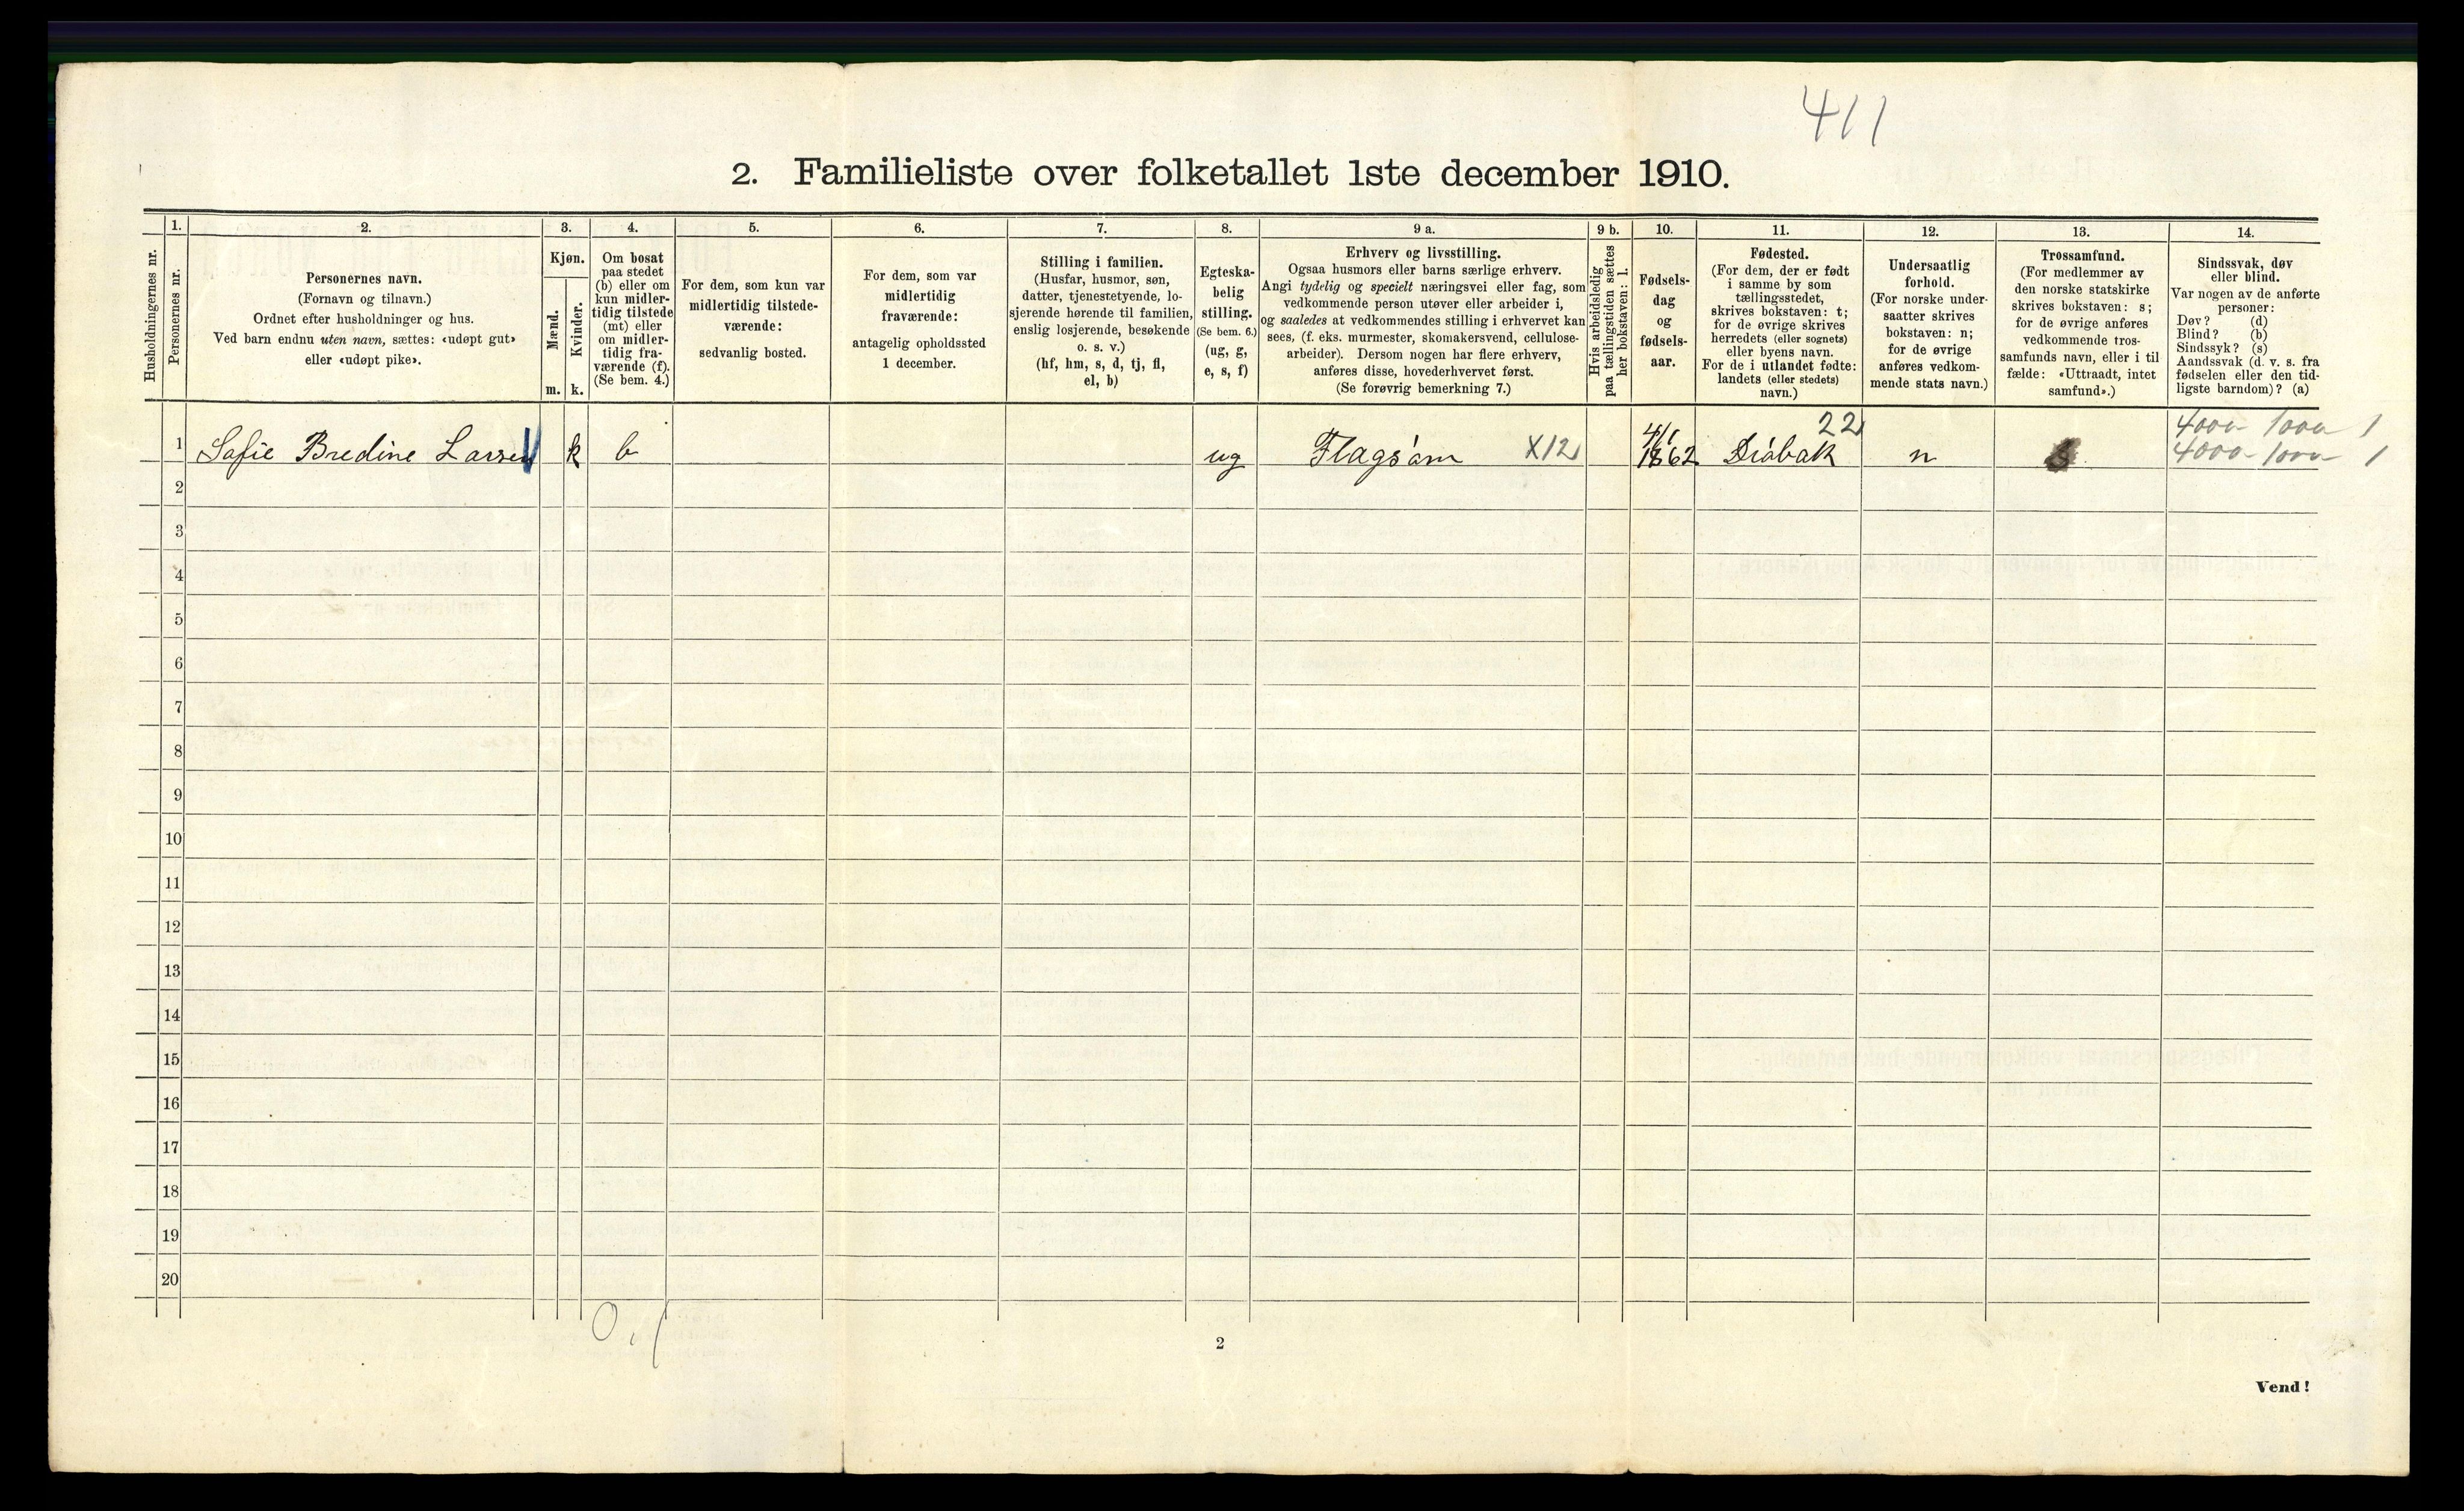 411
2. Familieliste over folketallet 1ste december 1910.
Husholdningernes nr.
1.
Personernes nr.
2.
Personernes navn.
(Fornavn og tilnavn.)
Ordnet efter husholdninger og hus.
Ved barn endnu uten navn, sættes: «udøpt gut»
eller «udøpt pike».
3.
Kjøn.
Mænd.
Kvinder.
m. k.
4.
Om bosat
paa stedet
(b) eller om
kun midler-
tidig tilstede
(mt) eller
om midler-
tidig fra-
værende (f).
(Se bem. 4.)
5.
For dem, som kun var
midlertidig tilstede-
værende:
sedvanlig bosted.
6.
For dem, som var
midlertidig
fraværende:
antagelig opholdssted
1 december.
7.
Stilling i familien.
(Husfar, husmor, søn,
datter, tjenestetyende, lo-
sjerende hørende til familien,
enslig losjerende, besøkende
o. s. v.)
(hf, hm, s, d, tj, fl,
el, b)
8.
Egteska-
belig
stilling.
(Se bem. 6.)
(ug, g,
e, s, f)
9 a.
Erhverv og livsstilling.
Ogsaa husmors eller barns særlige erhverv.
Angi tydelig og specielt næringsvei eller fag, som
vedkommende person utøver eller arbeider i,
og saaledes at vedkommendes stilling i erhvervet kan
sees, (f. eks. murmester, skomakersvend, cellulose-
arbeider). Dersom nogen har flere erhverv,
anføres disse, hovederhvervet først.
(Se forøvrig bemerkning 7.)
9 b.
Hvis arbeidsledig
paa tællingstiden sættes
her bokstaven: l.
10.
Fødsels-
dag
og
fødsels-
aar.
11.
Fødested.
(For dem, der er født
i samme by som
tællingsstedet,
skrives bokstaven: t;
for de øvrige skrives
herredets (eller sognets)
eller byens navn.
For de i utlandet fødte:
landets (eller stedets)
navn.)
12.
Undersaatlig
forhold.
(For norske under-
saatter skrives
bokstaven: n;
for de øvrige
anføres vedkom-
mende stats navn.)
13.
Trossamfund.
(For medlemmer av
den norske statskirke
skrives bokstaven: s;
for de øvrige anføres
vedkommende tros-
samfunds navn, eller i til
fælde: «Uttraadt, intet
samfund».)
14.
Sindssvak, døv
eller blind.
Var nogen av de anførte
personer:
Døv? (d)
Blind? (b)
Sindssyk? (s)
Aandssvak (d. v. s. fra
fødselen eller den tid-
ligste barndom)? (a)
22
4000 - 1000 1
1 Sofie Bredine Larsen k b ug Flagsöm X12 4/1 1862 Dröbak n s 4000 - 1000 - 1
2
3
4
5
6
7
8
9
10
11
12
13
14
15
16
17
18
19
20
0.1
2
Vend!